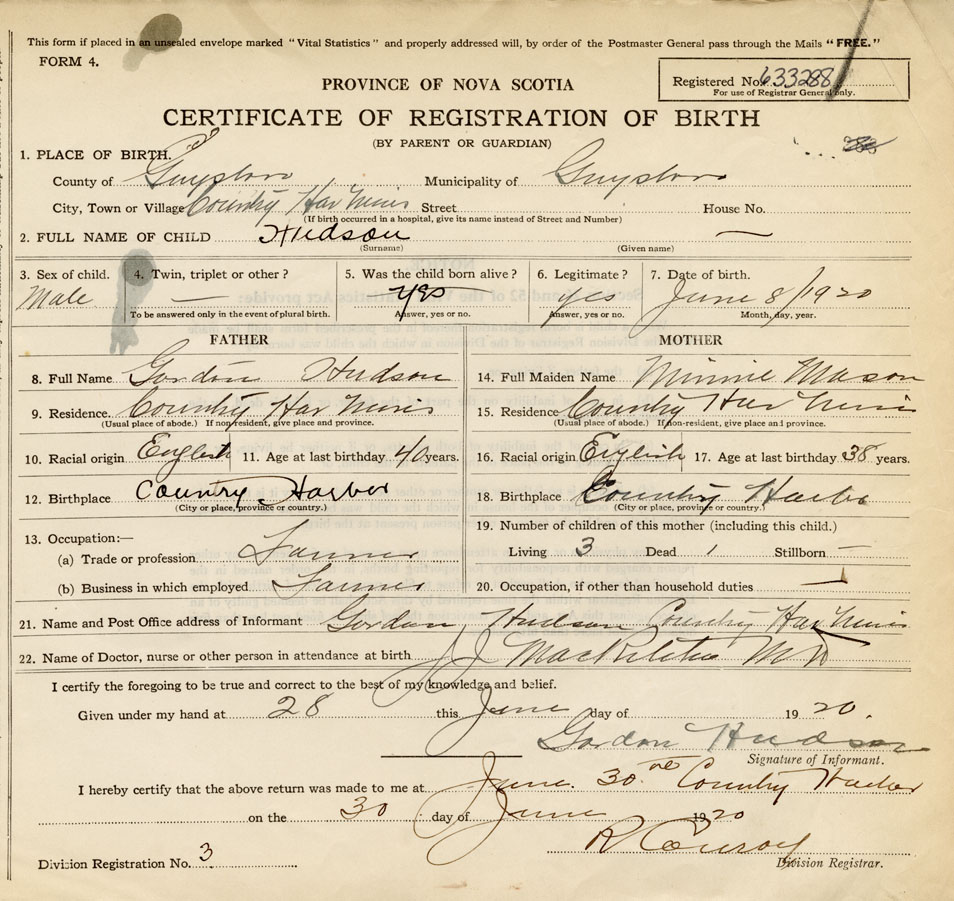 This form if placed in an unsealed envelope marked "Vital Statistics" and properly addressed will, by order of the Postmaster General pass through the Mails "FREE."
FORM 4.
PROVINCE OF NOVA SCOTIA
Registered No. 633288
For use of Registrar General only.
CERTIFICATE OF REGISTRATION OF BIRTH
(BY PARENT OR GUARDIAN)
1. PLACE OF BIRTH.
County of Guysboro Municipality of Guysboro
City, Town or Village Country Har Street House No.
(If birth occurred in a hospital, give its name instead of Street and Number)
2. FULL NAME OF CHILD Hudson —
(Surname) (Given name)
3. Sex of child. 4. Twin, triplet or other? 5. Was the child born alive? 6. Legitimate? 7. Date of birth.
Male — yes yes June 8/1920
To be answered only in the event of plural birth. Answer, yes or no. Answer, yes or no. Month, day, year.
FATHER MOTHER
8. Full Name Gordon Hudson 14. Full Maiden Name Minnie Mason
9. Residence. Country Har 15. Residence Country Har
(Usual place of abode.) If non-resident, give place and province. (Usual place of abode.) If non-resident, give place and province.
10. Racial origin English 11. Age at last birthday 40 years. 16. Racial origin English 17. Age at last birthday 38 years.
12. Birthplace Country Harbor 18. Birthplace Country Harbor
(City or place, province or country.) (City or place, province or country.)
13. Occupation:— 19. Number of children of this mother (including this child.)
(a) Trade or profession Farmer Living 3 Dead 1 Stillborn —
(b) Business in which employed Farmer 20. Occupation, if other than household duties —
21. Name and Post Office address of Informant Gordon Hudson Country Har
22. Name of Doctor, nurse or other person in attendance at birth J J M D
I certify the foregoing to be true and correct to the best of my knowledge and belief.
Given under my hand at 28 this June day of 1920.
Gordon Hudson
Signature of Informant.
I hereby certify that the above return was made to me at June. 30 Country Harbor
on the 30 day of June 1920
R Conroy
Division Registration No. 3 Division Registrar.